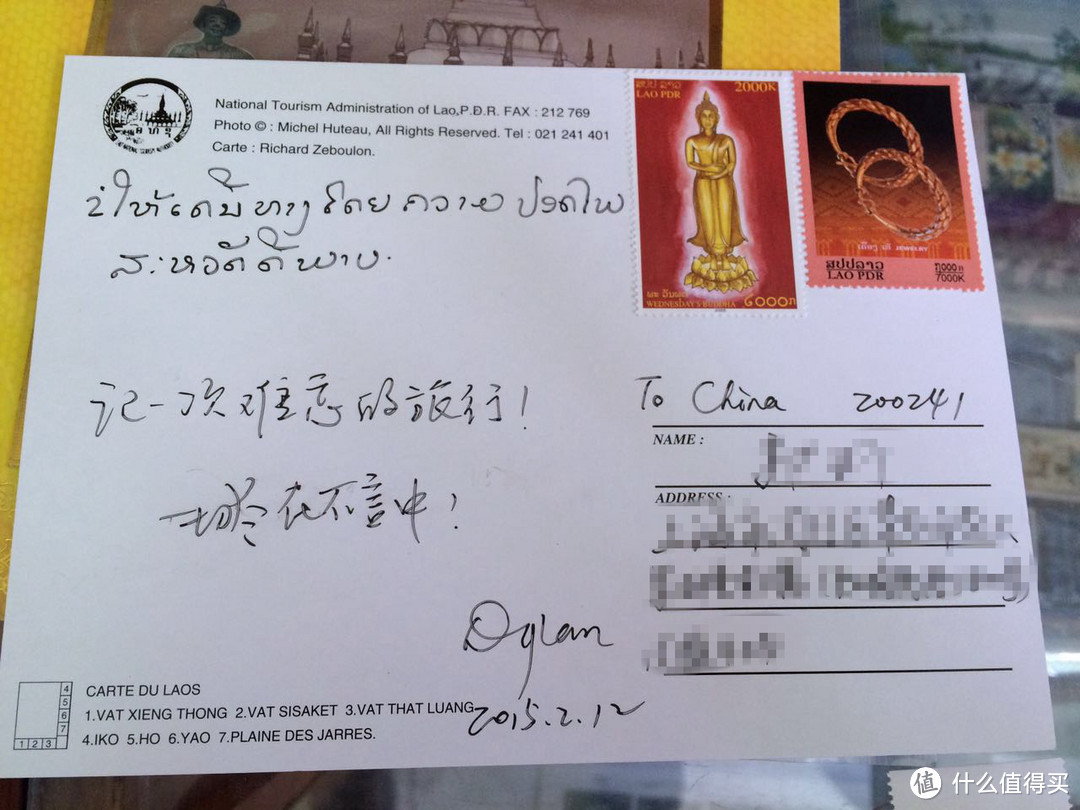 National Tourism Administration of Lao,P.Đ.R. FAX : 212 769
Photo © : Michel Huteau, All Rights Reserved. Tel : 021 241 401
Carte : Richard Zeboulon.
ໃຫ້ເດີນທາງໂດຍຄວາມປອດໄພ
ສະຫວັດດີພາບ.
ສປປ ລາວ
LAO PDR
2000K
ພຣະ ວັນພຸດ
WEDNESDAY'S BUDDHA
໒໐໐໐ກ
ເຄື່ອງ JEWELRY
ສປປລາວ
LAO PDR
7000K
记一次难忘的旅行!
一切尽在不言中!
To China 200241
NAME :
ADDRESS :
Dylan
2015.2.12
CARTE DU LAOS
1.VAT XIENG THONG 2.VAT SISAKET 3.VAT THAT LUANG
4.IKO 5.HO 6.YAO 7.PLAINE DES JARRES.
4
5
6
7
1 2 3
值 什么值得买